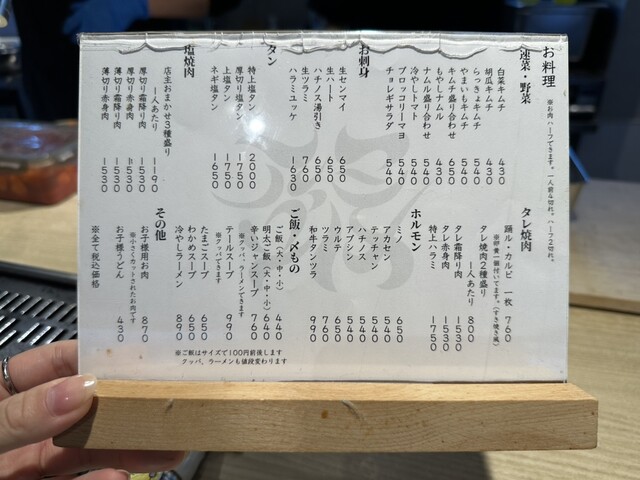 お料理
※お肉ハーフできます。一人前4切れ。ハーフ2切れ。
速菜・野菜
白菜キムチ 430
胡瓜キムチ 430
らっきょキムチ 540
やまいもキムチ 540
キムチ盛り合わせ 650
もやしナムル 430
ナムル盛り合わせ 540
冷やしトマト 540
ブロッコリーマヨ 540
チョレギサラダ 540
お刺身
生センマイ 650
生ハート 650
ハチノス湯引き 650
生ツラミ 760
ハラミユッケ 1630
タン
特上塩タン 2000
厚切り塩タン 1750
上塩タン 1750
ネギ塩タン 1650
塩焼肉
店主おまかせ3種盛り
一人あたり 1190
厚切り霜降り肉 1530
厚切り赤身肉 1530
薄切り霜降り肉 1530
薄切り赤身肉 1530
タレ焼肉
踊ル・カルビ 一枚 760
※卵黄一個付いてます。(すき焼き風)
タレ焼肉2種盛り
一人あたり 800
タレ霜降り肉 1530
タレ赤身肉 1530
特上ハラミ 1750
ホルモン
ミノ 650
アカセン 540
テッチャン 540
ハチノス 540
アブシン 540
ウルテ 650
ツラミ 650
和牛タンツラ 990
ご飯・〆もの
ご飯(大・中・小) 440
明太ご飯(大・中・小) 640
辛いジャンスープ 760
※クッパ、ラーメンできます
テールスープ 990
※クッパできます
たまごスープ 650
わかめスープ 650
冷やしラーメン 890
※ご飯はサイズで100円前後します
クッパ、ラーメンも値段変わります
その他
お子様用お肉 870
※小さくカットされたお肉です
お子様うどん 430
※全て税込価格